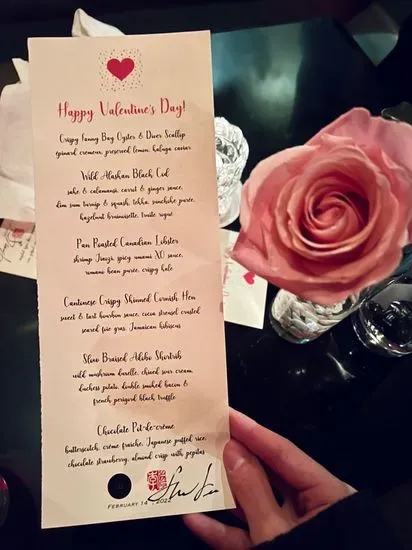 Happy Valentine's Day!
Crispy Fanny Bay Oyster & Diver Scallop
spinard cremeux, preserved lemon, kaluga caviar
Wild Alaskan Black Cod
sake & calamansi, carrot & ginger sauce,
dim sum turnip & squash, tekka, sunchoke purée,
hazelnut brunoisette, truite rogue
Pan Roasted Canadian Lobster
shrimp Jiaozi, spicy umami XO sauce,
romano bean purée, crispy kale
Cantonese Crispy Skinned Cornish Hen
sweet & tart bourbon sauce, cocoa streusel crusted
seared foie gras, Jamaican hibiscus
Slow Braised Adobo Shortrib
wild mushroom duxelle, chived sour cream,
duchess potato, double smoked bacon &
french perigord black truffle
Chocolate Pot-de-crème
butterscotch, crème fraîche, Japanese puffed rice,
chocolate strawberry, almond crisp with pepitas
FEBRUARY 14 2022